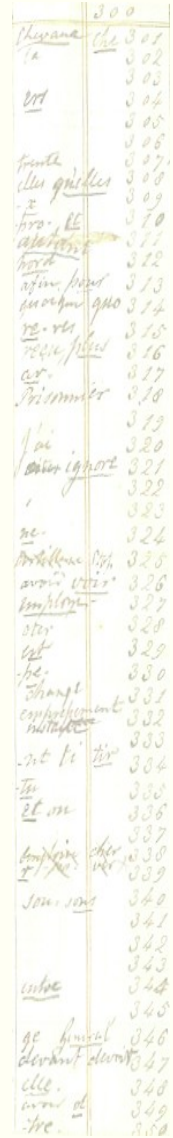 300
che 301
ta 302
303
ers 304
305
306
trente 307
elles qu'elles 308
-x 309
pro. et 310
autant 311
nord 312
afin, pour 313
quoique quo 314
re. res 315
reçu, plus 316
ar. 317
Prisonnier 318
319
j'ai 320
ignore 321
322
323
ne. 324
325
avoir voir 326
employer 327
oter 328
est 329
-pe. 330
change 331
332
333
-nt ti tir 334
tu 335
et on 336
337
cher 338
ver 339
son. sons 340
341
342
343
entre 344
345
ge general 346
devant devoit 347
elle. 348
avoir d 349
-tre. 350